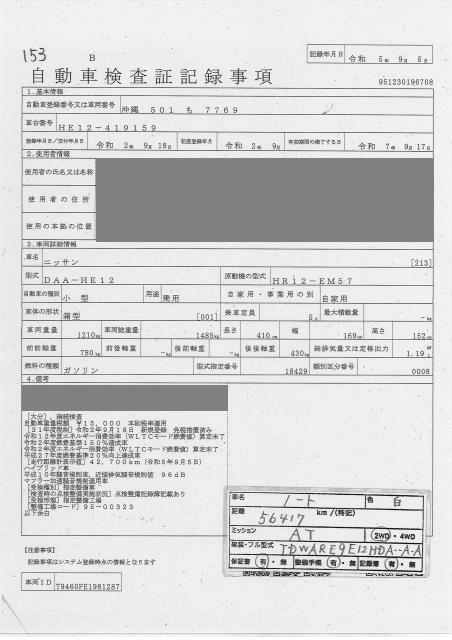 153
B
記録年月日 令和 5年 9月 5日
自動車検査証記録事項
951230196708
1.基本情報
自動車登録番号又は車両番号 沖縄 501 も 7769
車台番号 HE12-419159
登録年月日/交付年月日 令和 2年 9月18日 初度登録年月 令和 2年 9月 有効期間の満了する日 令和 7年 9月17日
2.使用者情報
使用者の氏名又は名称
使用者の住所
使用の本拠の位置
3.車両詳細情報
車名 ニッサン [213]
型式 DAA-HE12 原動機の型式 HR12-EM57
自動車の種別 小型 用途 乗用 自家用・事業用の別 自家用
車体の形状 箱型 [001] 乗車定員 5人 最大積載量 -kg
車両重量 1210kg 車両総重量 1485kg 長さ 410cm 幅 169cm 高さ 152cm
前前軸重 780kg 前後軸重 -kg 後前軸重 -kg 後後軸重 430kg 総排気量又は定格出力 1.19L
燃料の種類 ガソリン 型式指定番号 18429 類別区分番号 0008
4.備考
[大分],継続検査
自動車重量税額 ¥15,000 本則税率適用
[31年度税制]令和2年9月18日 新規登録 免税措置済み
令和12年度エネルギー消費効率(WLTCモード燃費値)算定未了
令和2年度燃費基準150%達成車
令和2年度エネルギー消費効率(WLTCモード燃費値)算定未了
平成27年度燃費基準20%向上達成車
[走行距離計表示値]42,700km(令和5年9月5日)
ハイブリッド車
平成10年騒音規制車,近接排気騒音規制値 96dB
マフラー加速騒音規制適用車
[受検種別]指定整備車
[検査時の点検整備実施状況]点検整備記録簿記載あり
[受検形態]指定整備工場
[整備工場コード]95-00323
以下余白
車名 ノート 色 白
距離 56417 km/(特記)
ミッション AT 2WD・4WD
架装・フル型式 TDWARE9E12HDA--A-A
保証書 有・無 整備手帳 有・無 記録簿 有・無
[注意事項]
記録事項はシステム登録時点の情報となります
車両ID T9460FE1981287